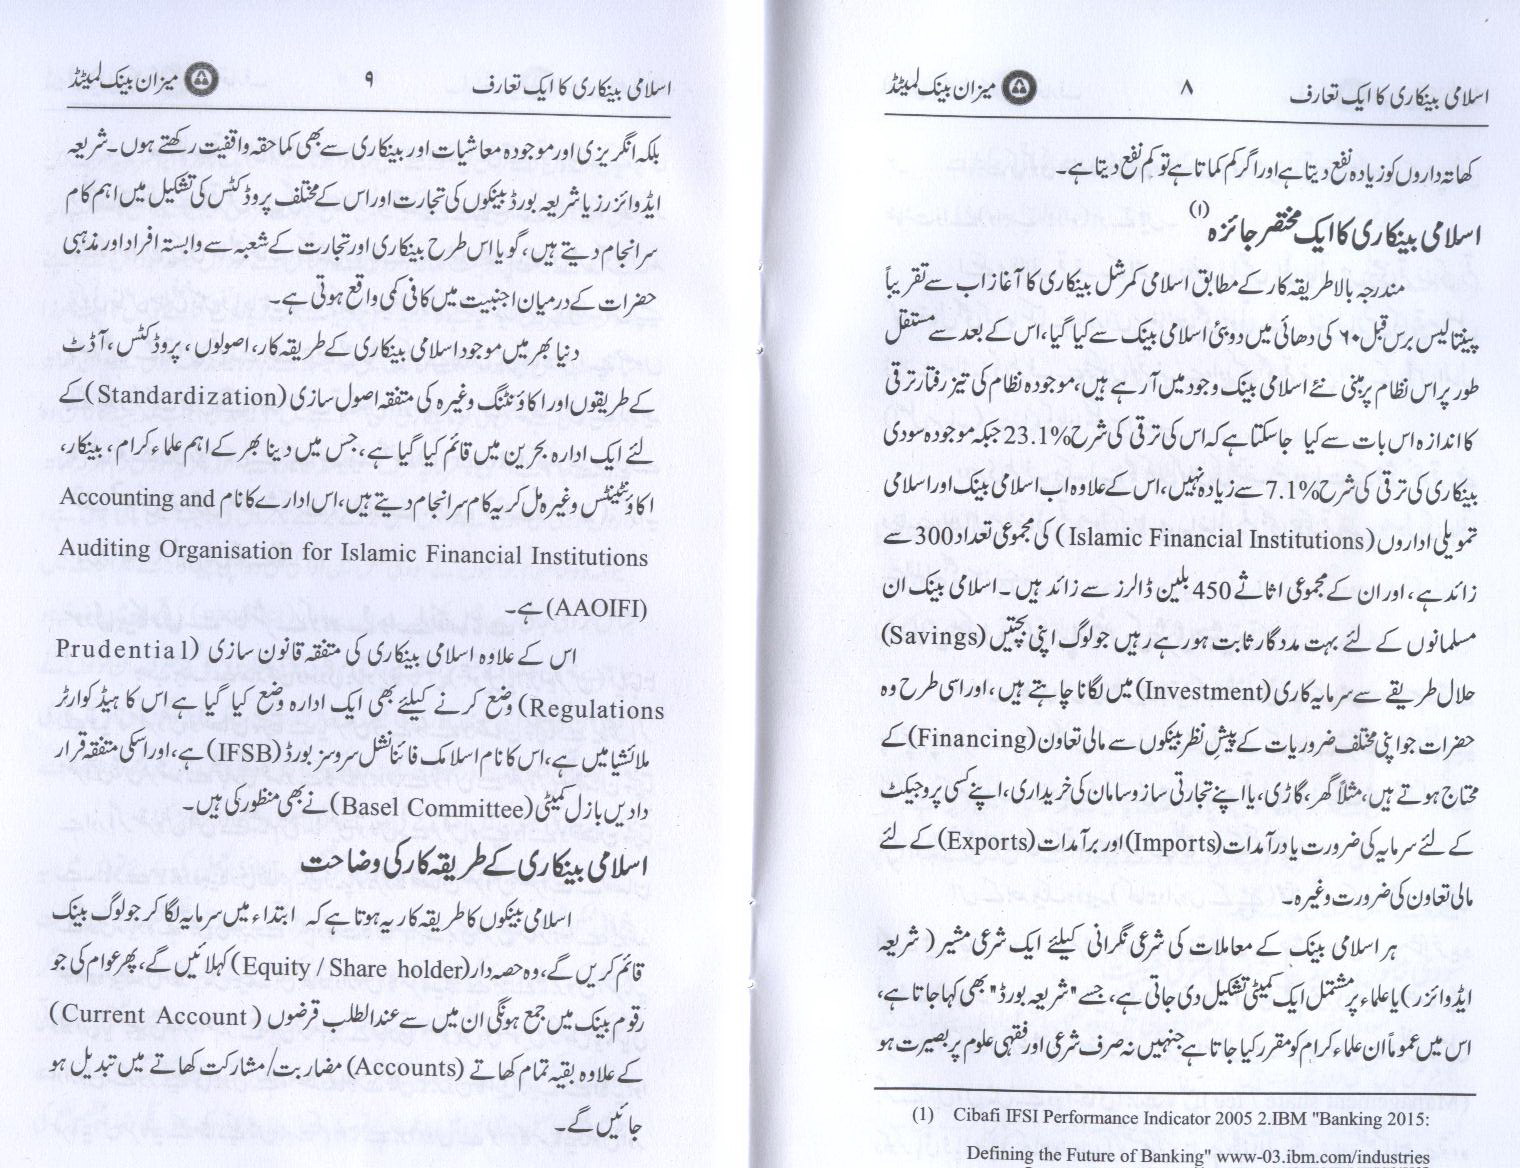 اسلامی بینکاری کا ایک تعارف ۸ میزان بینک لمیٹڈ
کھاتہ داروں کو زیادہ نفع دیتا ہے اور اگر کم کماتا ہے تو کم نفع دیتا ہے۔
اسلامی بینکاری کا ایک مختصر جائزہ (۱)
مندرجہ بالا طریقہ کار کے مطابق اسلامی کمرشل بینکاری کا آغاز اب سے تقریباً
پینتالیس برس قبل ۶۰ کی دھائی میں دوبئی اسلامی بینک سے کیا گیا، اس کے بعد سے مستقل
طور پر اس نظام پر مبنی نئے اسلامی بینک وجود میں آرہے ہیں، موجودہ نظام کی تیز رفتار ترقی
کا اندازہ اس بات سے کیا جاسکتا ہے کہ اس کی ترقی کی شرح %23.1 جبکہ موجودہ سودی
بینکاری کی ترقی کی شرح %7.1 سے زیادہ نہیں، اس کے علاوہ اب اسلامی بینک اور اسلامی
تمویلی اداروں (Islamic Financial Institutions) کی مجموعی تعداد 300 سے
زائد ہے، اور ان کے مجموعی اثاثے 450 بلین ڈالرز سے زائد ہیں۔ اسلامی بینک ان
مسلمانوں کے لئے بہت مددگار ثابت ہورہے رہیں جو لوگ اپنی بچتیں (Savings)
حلال طریقے سے سرمایہ کاری (Investment) میں لگانا چاہتے ہیں، اور اسی طرح وہ
حضرات جو اپنی مختلف ضروریات کے پیشِ نظر بینکوں سے مالی تعاون (Financing) کے
محتاج ہوتے ہیں، مثلاً گھر، گاڑی، یا اپنے تجارتی ساز و سامان کی خریداری، اپنے کسی پروجیکٹ
کے لئے سرمایہ کی ضرورت یا درآمدات (Imports) اور برآمدات (Exports) کے لئے
مالی تعاون کی ضرورت وغیرہ۔
ہر اسلامی بینک کے معاملات کی شرعی نگرانی کیلئے ایک شرعی مشیر (شریعہ
ایڈوائزر) یا علماء پر مشتمل ایک کمیٹی تشکیل دی جاتی ہے، جسے "شریعہ بورڈ" بھی کہا جاتا ہے،
اس میں عموماً ان علماء کرام کو مقرر کیا جاتا ہے جنہیں نہ صرف شرعی اور فقہی علوم پر بصیرت ہو
(1) Cibafi IFSI Performance Indicator 2005 2.IBM "Banking 2015:
Defining the Future of Banking" www-03.ibm.com/industries
اسلامی بینکاری کا ایک تعارف ۹ میزان بینک لمیٹڈ
بلکہ انگریزی اور موجودہ معاشیات اور بینکاری سے بھی کماحقہ واقفیت رکھتے ہوں۔ شریعہ
ایڈوائزرز یا شریعہ بورڈ بینکوں کی تجارت اور اس کے مختلف پروڈکٹس کی تشکیل میں اہم کام
سرانجام دیتے ہیں، گویا اس طرح بینکاری اور تجارت کے شعبہ سے وابستہ افراد اور مذہبی
حضرات کے درمیان اجنبیت میں کافی کمی واقع ہوئی ہے۔
دنیا بھر میں موجود اسلامی بینکاری کے طریقہ کار، اصولوں، پروڈکٹس، آڈٹ
کے طریقوں اور اکاؤنٹنگ وغیرہ کی متفقہ اصول سازی (Standardization) کے
لئے ایک ادارہ بحرین میں قائم کیا گیا ہے، جس میں دینا بھر کے اہم علماء کرام، بینکار،
اکاؤنٹینٹس وغیرہ مل کر یہ کام سرانجام دیتے ہیں، اس ادارے کا نام Accounting and
Auditing Organisation for Islamic Financial Institutions
(AAOIFI) ہے۔
اس کے علاوہ اسلامی بینکاری کی متفقہ قانون سازی (Prudential
Regulations) وضع کرنے کیلئے بھی ایک ادارہ وضع کیا گیا ہے اس کا ہیڈ کوارٹر
ملائشیا میں ہے، اس کا نام اسلامک فائنانشل سروسز بورڈ (IFSB) ہے، اور اسکی متفقہ قرار
دادیں بازل کمیٹی (Basel Committee) نے بھی منظور کی ہیں۔
اسلامی بینکاری کے طریقہ کار کی وضاحت
اسلامی بینکوں کا طریقہ کار یہ ہوتا ہے کہ ابتداء میں سرمایہ لگا کر جو لوگ بینک
قائم کریں گے، وہ حصہ دار (Equity / Share holder) کہلائیں گے، پھر عوام کی جو
رقوم بینک میں جمع ہونگی ان میں سے عندالطلب قرضوں (Current Account)
کے علاوہ بقیہ تمام کھاتے (Accounts) مضاربت/مشارکت کھاتے میں تبدیل ہو
جائیں گے۔